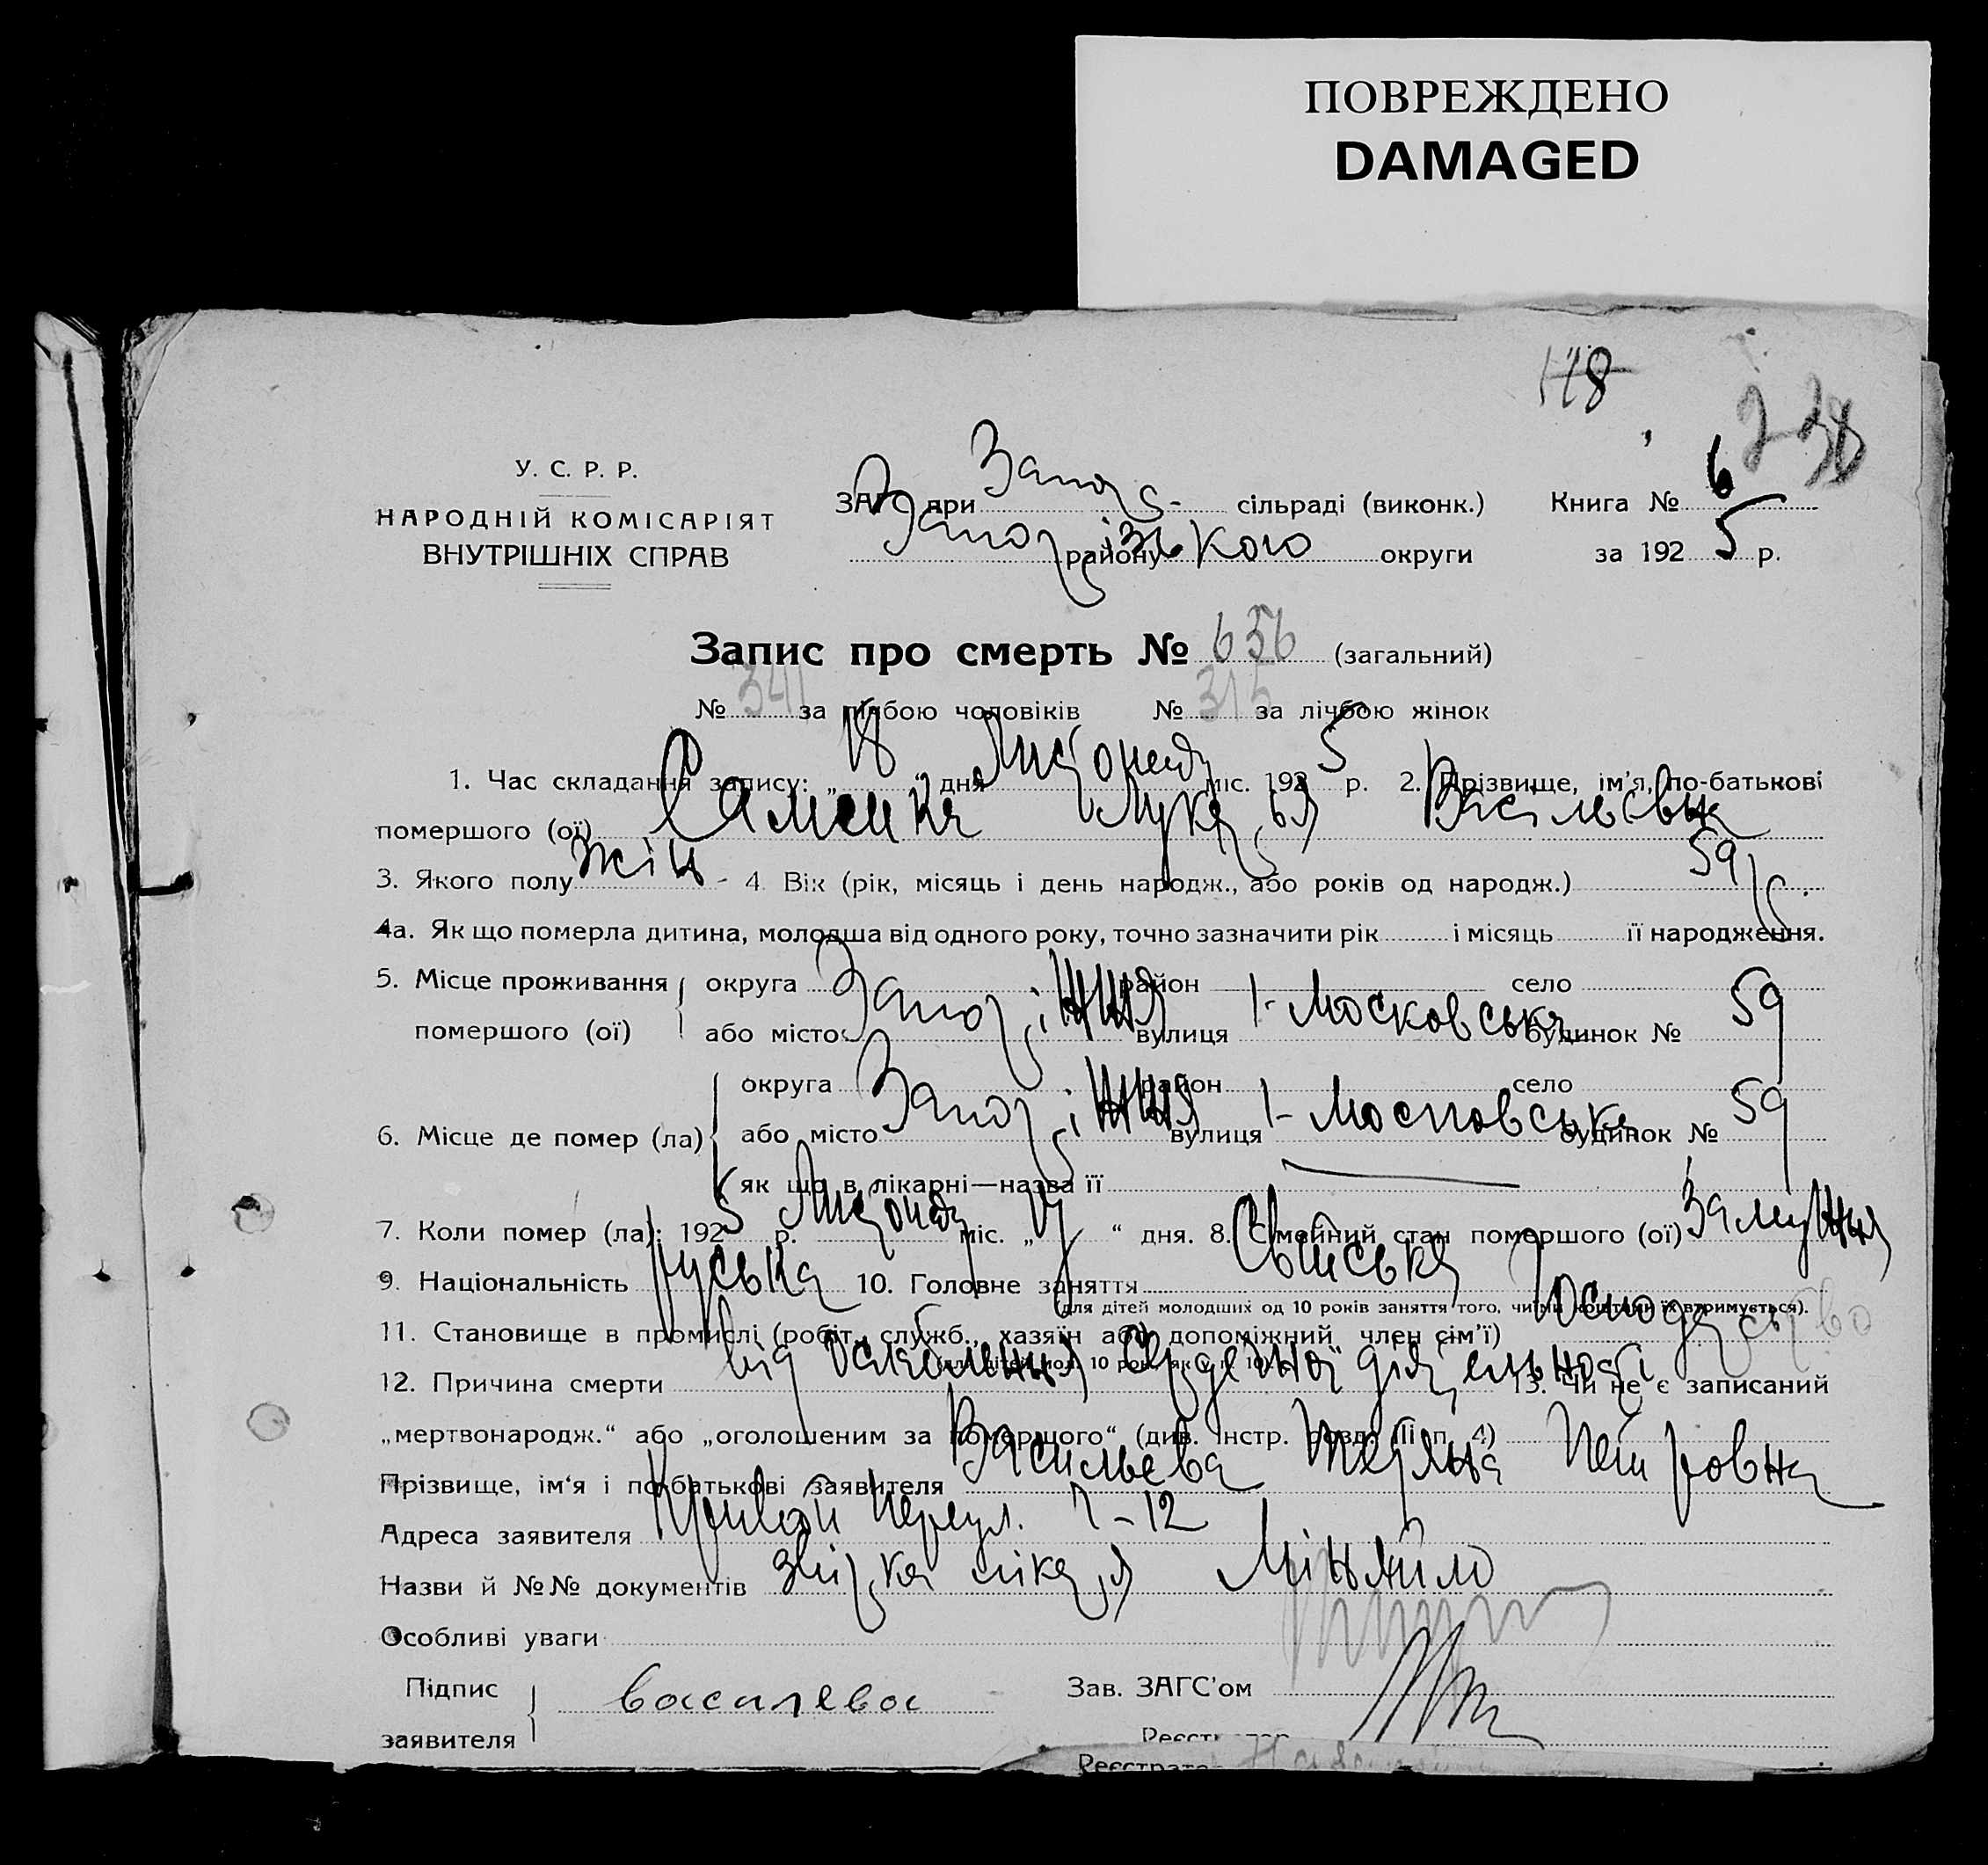 ПОВРЕЖДЕНО
DAMAGED
118
6
У. С. Р. Р.
НАРОДНІЙ КОМІСАРІЯТ
ВНУТРІШНІХ СПРАВ
ЗАГС при Запоріз- сільраді (виконк.) Книга № 6
Запорізького району округи за 1925 р.
Запис про смерть № 656 (загальний)
№ 341 за лічбою чоловіків № 315 за лічбою жінок
1. Час складання запису: „18“ дня Листопада міс. 1925 р. 2. Прізвище, ім’я, по-батькові
помершого (ої) Лукер'я Васільєвна
3. Якого полу жін- 4. Вік (рік, місяць і день народж., або років од народж.) 59 р.
4а. Як що померла дитина, молодша від одного року, точно зазначити рік і місяць її народження.
5. Місце проживання округа район село
помершого (ої) або місто Запоріжжя вулиця 1-Московська будинок № 59
округа район село
6. Місце де помер (ла) або місто Запоріжжя вулиця 1-Московська будинок № 59
як що в лікарні—назва її
7. Коли помер (ла): 1925 р. Листопада міс. „ “ дня. 8. Сімейний стан помершого (ої) Замужня
9. Національність руська 10. Головне заняття Хатнє
(для дітей молодших од 10 років заняття того, чиїми коштами їх втримується).
11. Становище в промислі (робіт., служб., хазяїн або допоміжний член сім’ї) господарство
(для дітей мол. 10 рок. як у п. 10).
12. Причина смерти від ослаблення сердечної діяльності 13. Чи не є записаний
„мертвонародж.“ або „оголошеним за помершого“ (див. Інстр. розд. III п. 4)
Прізвище, ім‘я і по-батькові заявителя Васильєва Петровна
Адреса заявителя Кривой переул. 7-12
Назви й №№ документів лікаря
Особливі уваги
Підпис
заявителя василева
Зав. ЗАГС’ом
Реєстратор